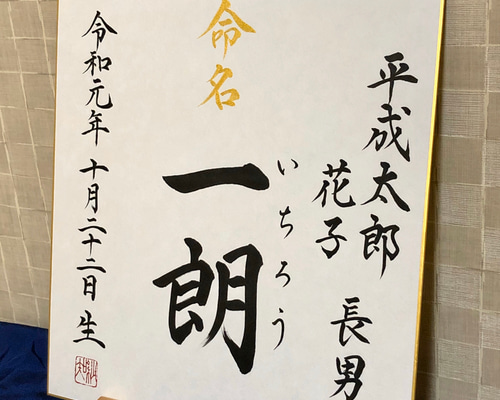 平成太郎
花子
長男
命名
一朗
いちろう
令和元年 十月二十二日 生